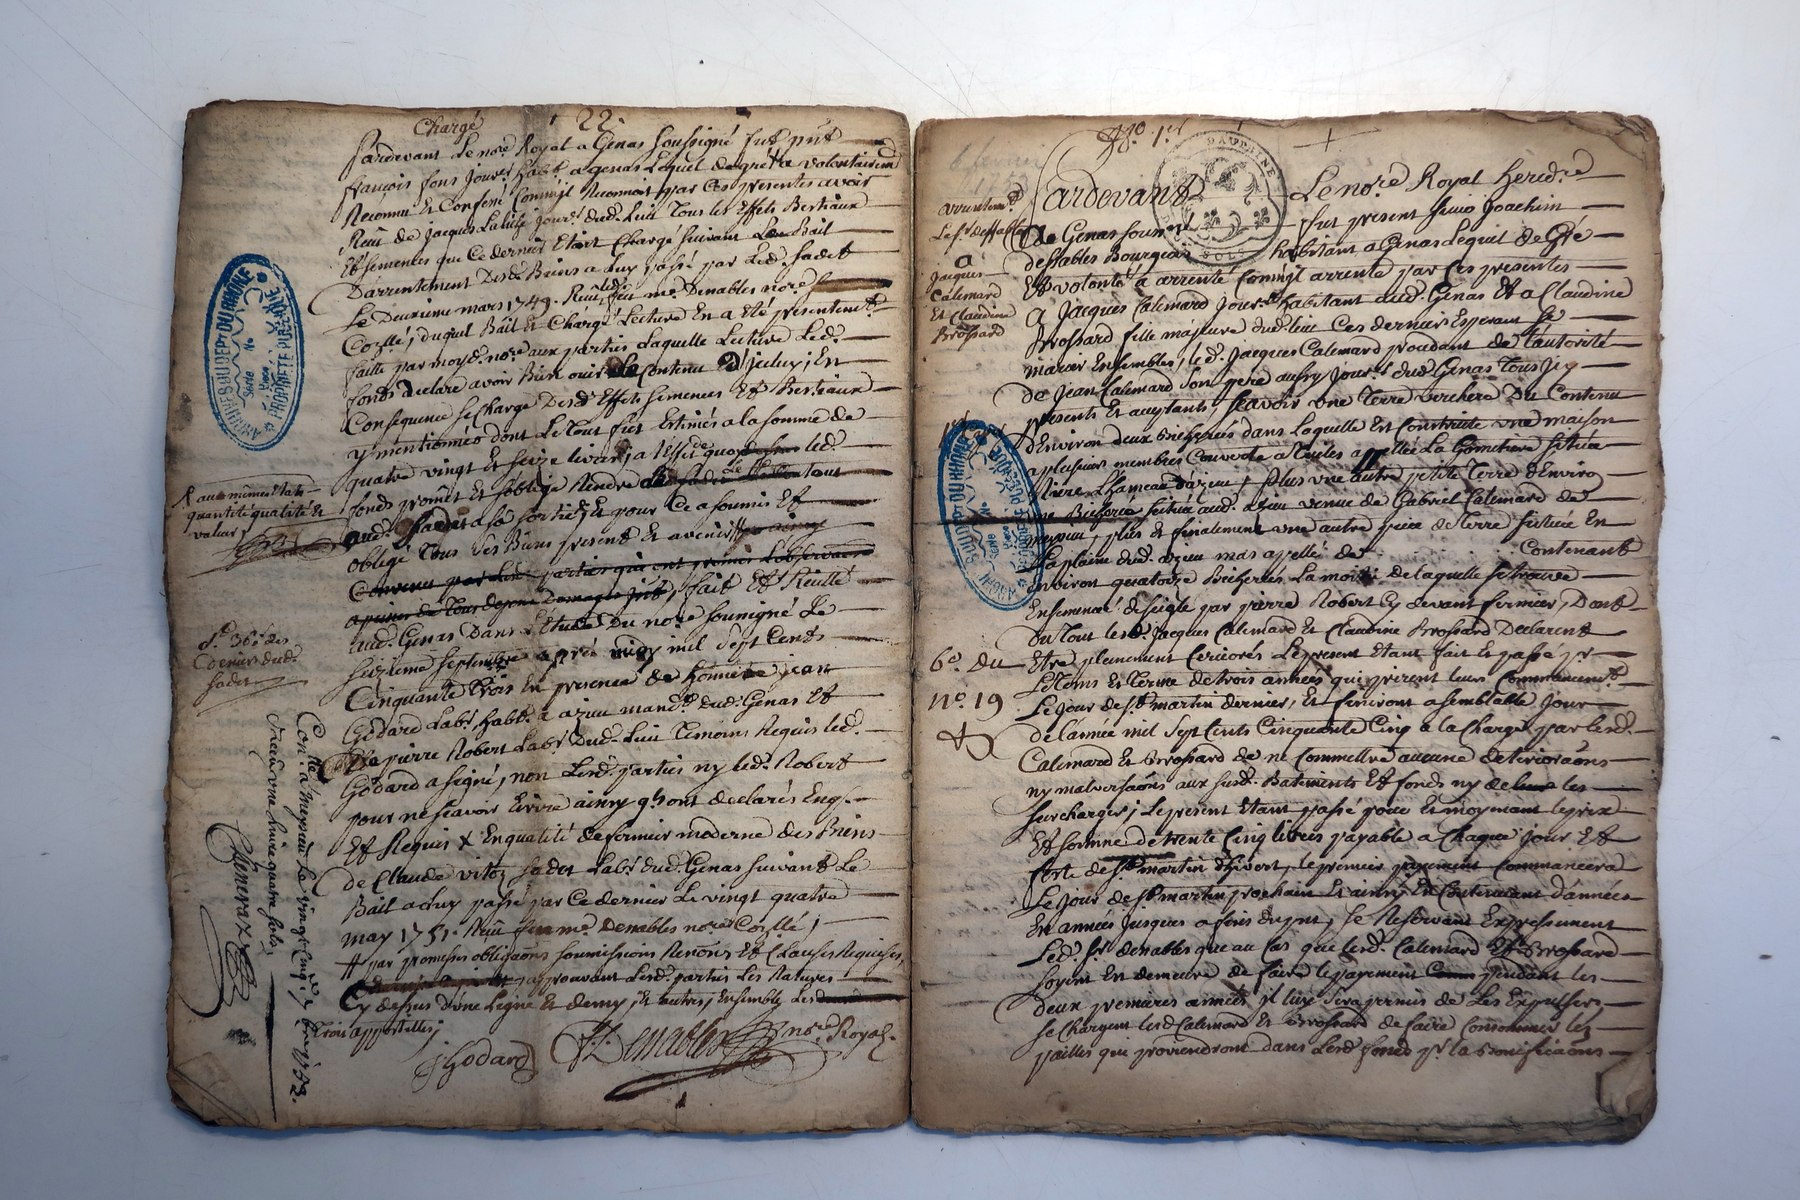 Chargé
22
Pardevant Le nore Royal a Genas soussigné fut pnt
francois fons Jour. habt. a genas Lequel de gré et volontairemt
Reconnu Et Confessé Commil Reconnoit par Ces presentes avoir
Reçu de Jacques Jour. dud. Lieu Tous les Effets Bestiaux
Et semences que Ce dernier Etait Chargé suivant Le Bail
Darrentement Desd Biens a Luy passé par Led. sadet
Le Deuxieme mars 1749. Reçu me Denables nore
Duquel Bail et Chargé Lecture En a Eté presentemt
faitte par moyd. nore aux parties Laquelle Lecture Led.
fons declare avoir Bien ouir Le Contenu En
Consequence se Charge Desd Effets semences Et Bestiaux
y mentionnés dont Le Tout fut Estimés a la somme de
quatre vingt Et seize livres, a led.
fons promet Et soblige Rendre Le tout
aud. sadet a sa sortie, Et pour Ce a soumis Et
obligé Tous ses Biens present Et avenir
fait Et Recitté
aud. Genas Dans L'Etude Du nore soussigné Le
seizieme septembre après midy mil sept Cents
Cinquante trois En presence de honnete jean
Godard Labr habt. a azieu mandt dud. Genas Et
De pierre Robert Labr Dud. Lieu Temoins Requis led.
Godard a signé, non Lesd. parties ny led. Robert
pour ne scavoir Ecrire ainsy qls ont declarés
Et Requis X En qualité de fermier moderne des Biens
de Claude vitoz sadet Labr dud. Genas suivant Le
Bail a luy passé par Ce dernier Le vingt quatre
may 1751. Reçu me Denables nore
# par promesses obligaons soumissions Renons Et Clauses Requises,
approuvant Lesd. parties Les Ratures
Cy dessus d'une Ligne Et demy, Et autres, Ensemble Les
trois appostilles,
J Godard
Denables nore Royal
aux mêmes Etats
quantité qualité Et
valeur
des
deniers dud.
sadet
Conllé a meyzieu La vingt Cinq 7bre 1753.
Reçu une livre quatre sols,
No. 1er
DAUPHINE
SOLS
Pardevant Le nore Royal heredre
De Genas soussné fut present sieur Joachim
deffables Bourgeois habitant a Genas Lequel de Gré
Et volonté a arrenté Comm'il arrente par Ces presentes
a Jacques Calemard Jour. habitant aud. Genas Et a Claudine
Brossard fille majeure dud Lieu Ces derniers Esperant se
marier Ensembles, led. Jacques Calemard procedant de l'autorité
de Jean Calemard son pere aussy Jour. dud Genas Tous Jcy
presents Et acceptants, scavoir une Terre verchere Du Contenu
d'Environ deux Bicherées dans Laquelle Est Construite une maison
a plusieurs membres Couverte a Tuiles appellée La Gonetiere située
Riere L'hameau d'azieu, plus une autre petite Terre d'Environ
une Bicherée située aud. azieu venue de Gabriel Calemard de
plus Et finalement une autre piece de Terre située En
La plaine dud. azieu mas appellé de Contenant
environ quatorze Bicherées La moitié de laquelle se trouve
Ensemencé de seigle par pierre Robert Cy devant fermier, Dont
Du Tout lesd. Jacques Calemard Et Claudine Brossard Declarent
Etre pleinement Cerciorés Le present Etant fait Et passé pr
Le Tems Et Terme de trois années qui prirent leur Commancemt
Le Jour de st martin dernier, Et finiront a semblable Jour
de l'année mil sept Cents Cinquante Cinq a la Charge par lesd.
Calemard Et Brossard de ne Commettre aucune deterioraons
ny malversaons aux susd. Batiments Et fonds ny de les
surcharger, Le present Etant passé pour Et moyenant le prix
Et somme de trente Cinq livres payable a Chaque Jour Et
fete de st martin d'hivert, le premier payement Commancera
Le Jour de st martin prochain Et ainsy En Continuant d'années
En années jusques a fois dujnt, se Reservant Expressement
Led. sr denables que au Cas que lesd. Calemard Et Brossard
soyent En demeure de faire le payement pendant les
deux premieres années, jl luy sera permis de Les Expulser
se Chargent lesd Calemard Et Brossard de faire Consommer les
pailles qui proviendront dans Lesd fonds pr la Bonificaons
arrentemt
Le sr deffables
a
Jacques
Calemard
Et Claudine
Brossard
6e. du
No. 19
ARCHIVES DU DEPT DU RHONE
PROPRIETE PUBLIQUE
Serie
No
ARCHIVES DU DEPT DU RHONE
PROPRIETE PUBLIQUE